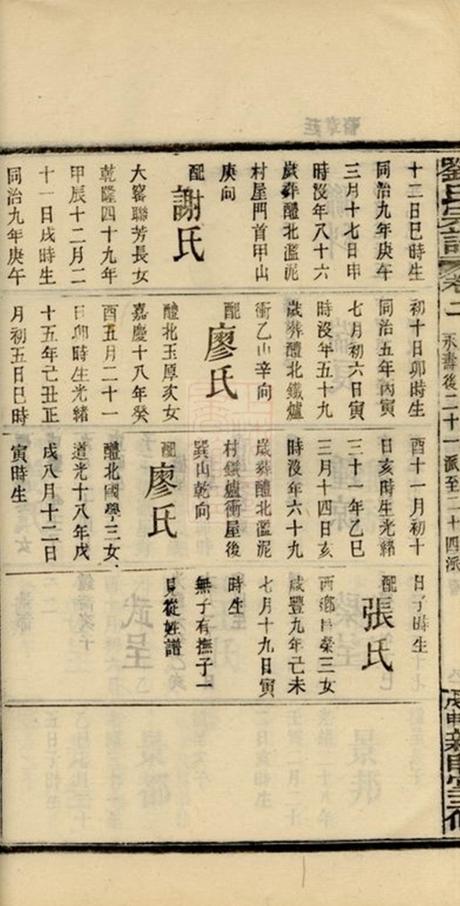 劉氏宗譜 卷二 永書後二十一派至二十四派
十二日巳時生
同治九年庚午
三月十七日申
時沒年八十六
歲葬醴北濫泥
村屋門首甲山
庚向
配謝氏
大窰聯芳長女
乾隆四十九年
甲辰十二月二
十一日戌時生
同治九年庚午
初十日卯時生
同治五年丙寅
七月初六日寅
時沒年五十九
歲葬醴北鐵爐
衝乙山辛向
配廖氏
醴北玉厚次女
嘉慶十八年癸
酉五月二十一
日卯時生光緒
十五年己丑正
月初五日巳時
酉十一月初十
日亥時生光緒
三十一年乙巳
三月十四日亥
時沒年六十九
歲葬醴北濫泥
村鐵爐衝屋後
巽山乾向
配廖氏
醴北國學三女
道光十八年戊
戌八月十二日
寅時生
日子時生
配張氏
西鄉昌榮三女
咸豐九年己未
七月十九日寅
時生
無子有撫子一
見從姪譜